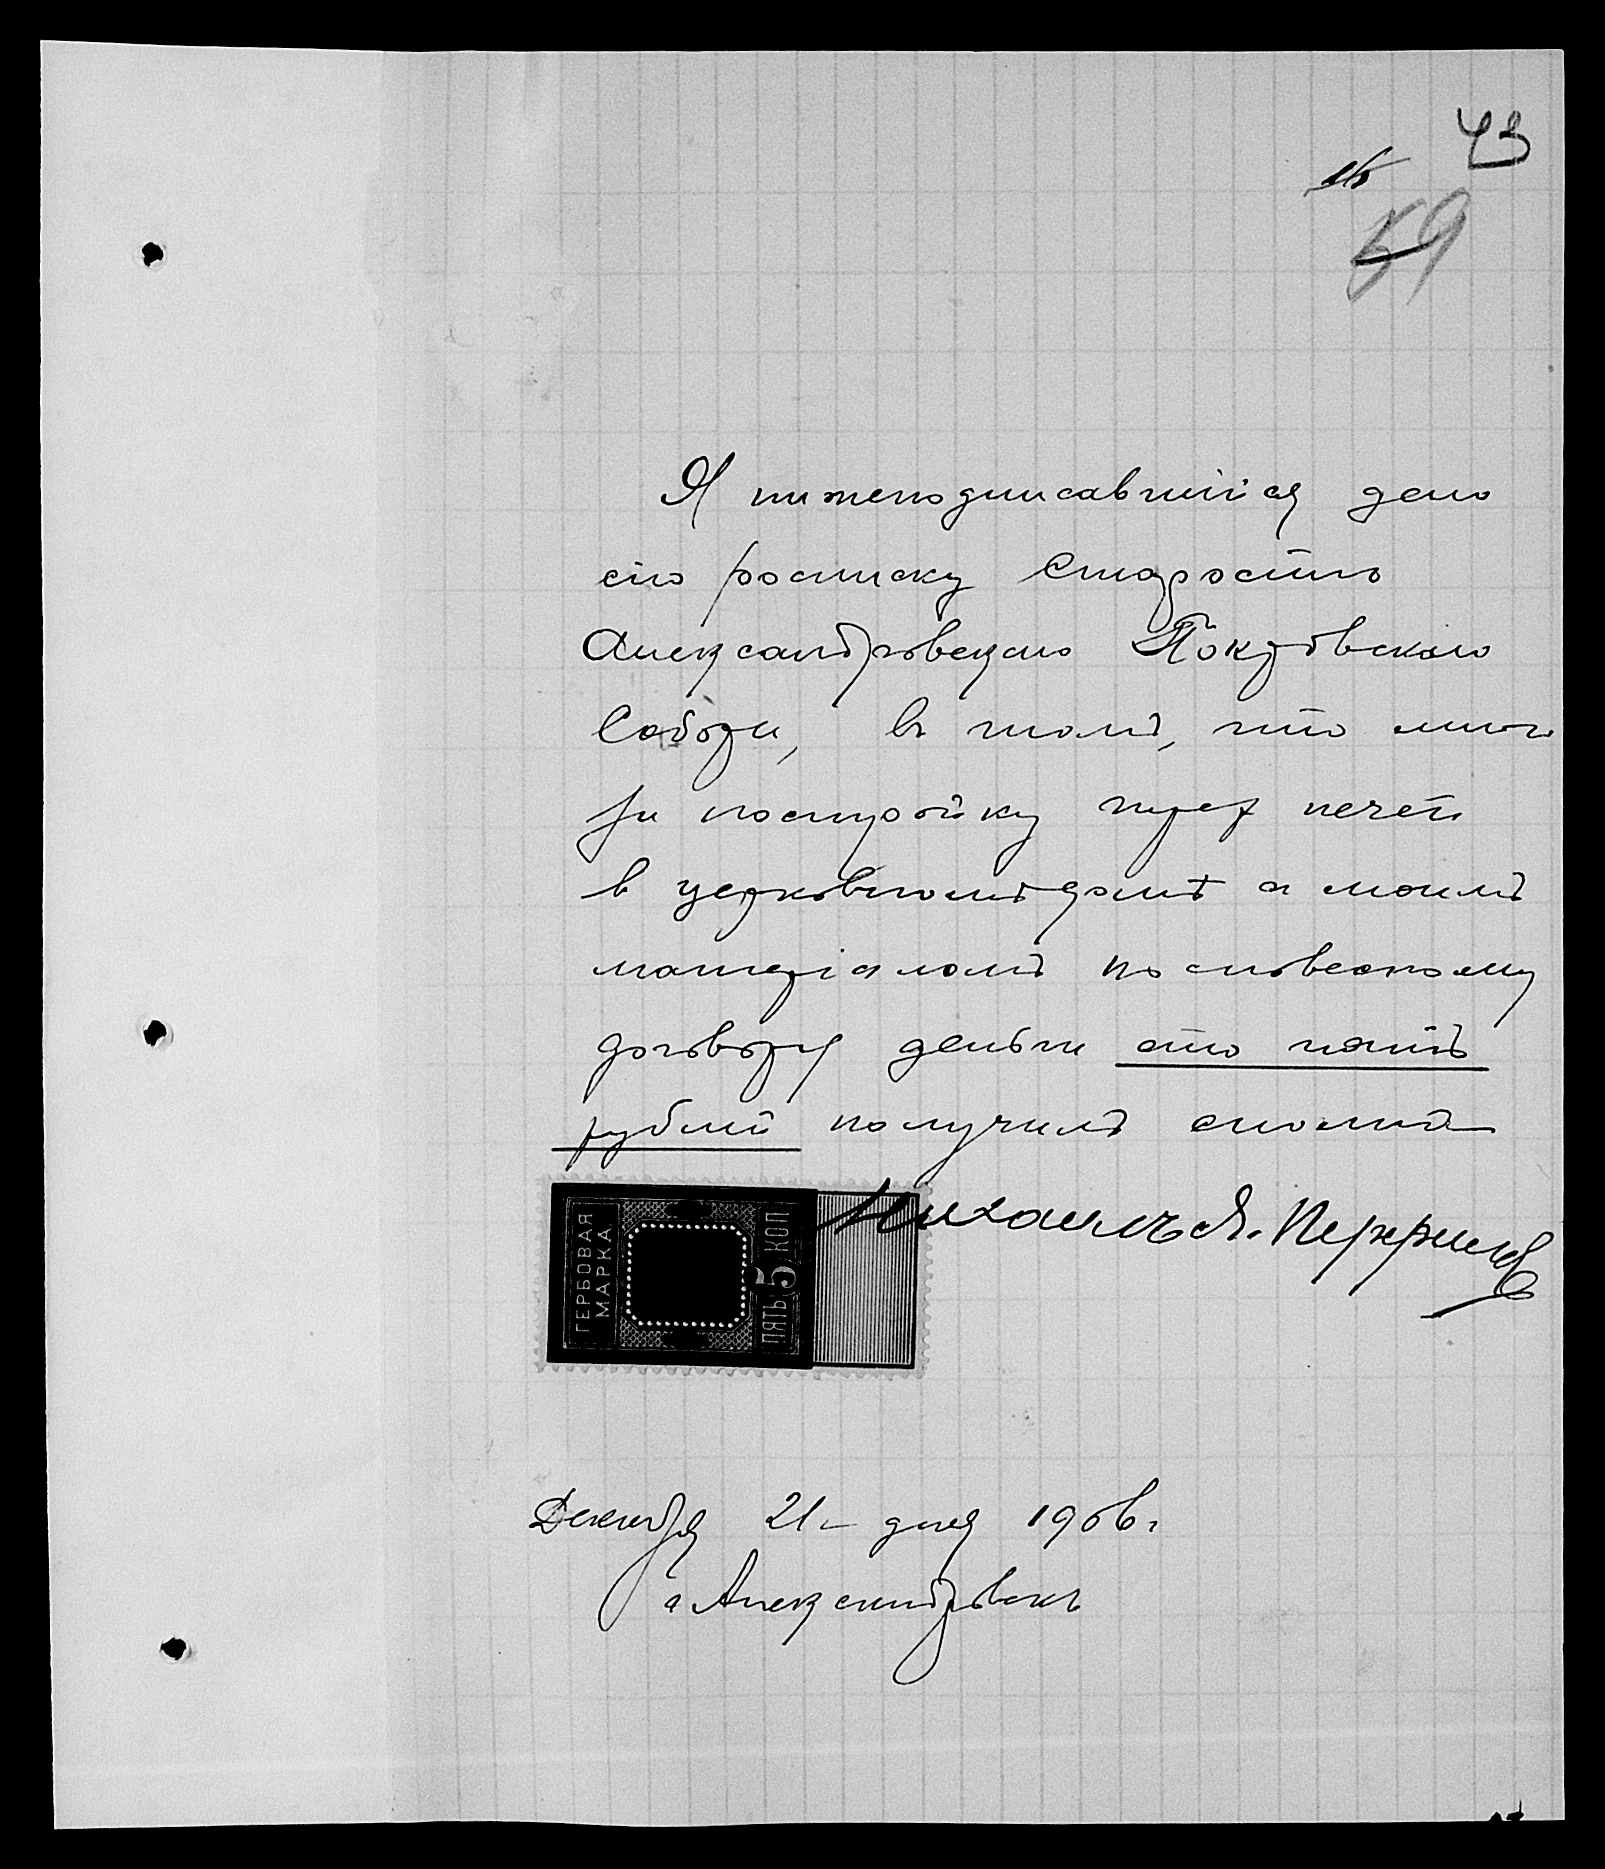 43
59
Я нижеподписавшійся даю
сію росписку Старостѣ
Александровскаго Покровскаго
Собора, въ томъ, что мною
за постройку трех печей
в церковномъ домѣ с моимъ
матеріаломъ по словесному
договору деньги сто пять
рублей получилъ сполна
Михаилъ
ГЕРБОВАЯ
МАРКА
ПЯТЬ 5 КОП
Декабря 21 дня 1906 г.
г Александровскъ